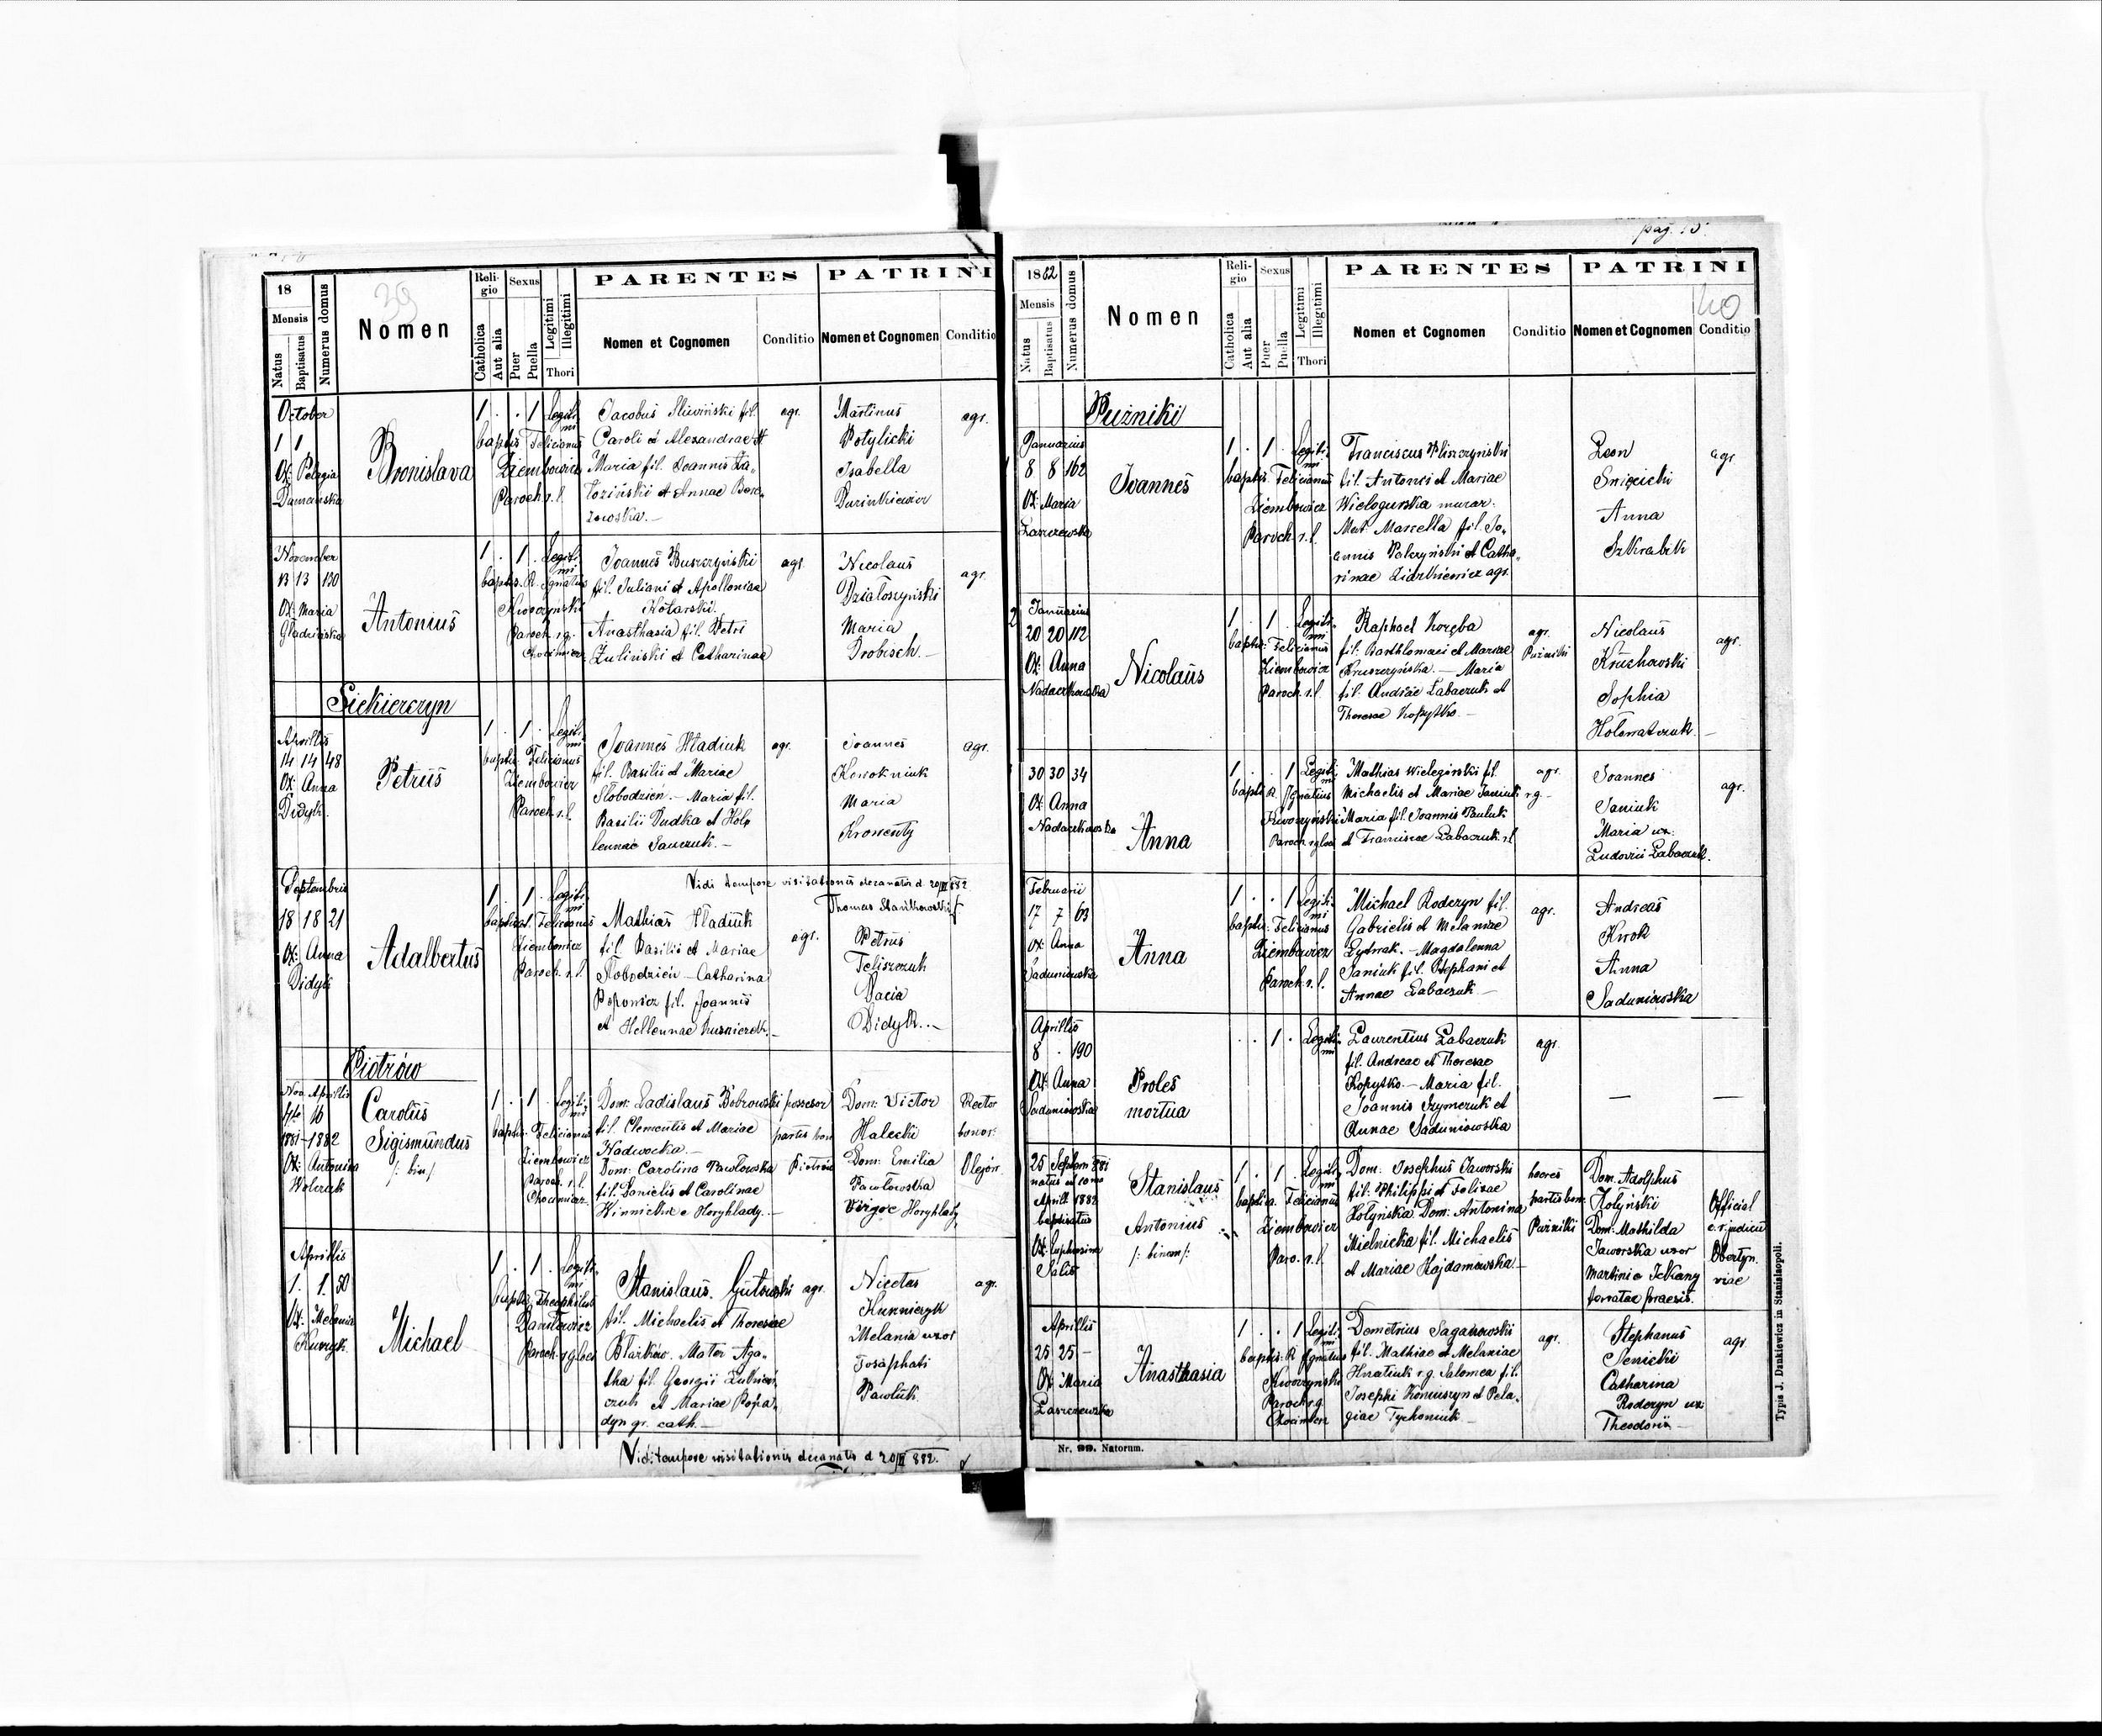 18
Mensis
Natus
Baptisatus
Numerus domus
39
Nomen
Religio
Catholica
Aut alia
Sexus
Puer
Puella
Legitimi
Illegitimi
Thori
PARENTES
Nomen et Cognomen
Conditio
PATRINI
Nomen et Cognomen
Conditio
October
1 1
Ox: Pelagia
Bronislava
1 . . 1 Legitimi
baptis Felicianus
Ziembowicz
Paroch r.l.
Jacobus Sliwiński fil.
Caroli et Alexandrae
Maria fil. Joannis Ła-
toziński et Annae
agr.
Martinus
Potylicki
Isabella
agr.
November
13 13 130
Ox: Maria
Antonius
1 . 1 . Legitimi
baptis. R. Ignatius
Kwoczyński
Paroch. r.g.
Chocimierz
Joannes Buszczyński
fil. Juliani et Apolloniae
Kotarski.
Anasthasia fil. Petri
Zuliński et Catharinae
agr.
Nicolaus
Działoszyński
Maria
Drobisch. –
agr.
Siekierczyn
Aprillis
14 14 48
Ox: Anna
Didyk.
Petrus
1 . 1 . Legitimi
baptis: Felicianus
Ziembowicz
Paroch. r.l.
Joannes Hładiuk
fil. Basilii et Mariae
Słobodzien. – Maria fil.
Basilii Dudka et Hel-
lennae Sauczuk. –
agr.
Joannes
Maria
agr.
Vidi tempore visitationis decanatis d. 20/III 882
Thomas Stańkowski
Septembris
18 18 21
Ox: Anna
Didyk
Adalbertus
1 . 1 . Legitimi
baptisat. Felicianus
Ziembowicz
Paroch. r.l.
Mathias Hładiuk
fil. Basilii et Mariae
Słobodzien – Catharina
Popowicz fil. Joannis
et Hellennae
agr.
Petrus
Feliszczuk
Dacia
Didyk. –
Piotrów
Aprillis
16
1881 – 1882
Ox: Antonina
Wolczuk
Carolus
Sigismundus
/: bin /
1 . 1 . Legitimi
baptis: Felicianus
Ziembowicz
Paroch. r.l.
Chocimierz.
Dom: Ladislaus Bobrowski
fil. Clementis et Mariae
Nadwocka. –
Dom: Carolina Pawłowska
fil. Danielis et Carolinae
Winnicka e Horyhlady. –
possesor
partis bon
Piotrów
Dom: Victor
Halecki
Dom: Emilia
Pawłowska
Virgo e Horyhlady
Rector
bonor.
Olejów
Aprillis
1. 1. 50
Ox: Melania
Michael
1 . 1 . Legitimi
baptis Theophilus
Daniłowicz
Paroch. r. g. loci
Stanislaus. Gutowski
fil. Michaelis et Theresiae
Błażków. Mater Aga-
tha fil. Georgii
czuk et Mariae Popa-
dyn gr. cath. –
agr.
Nicetas
Melania uxor
Josaphati
Pawluk.
agr.
Vidi tempore visitationis decanatis d 20/III 882.
pag. 15.
1882
Mensis
Natus
Baptisatus
Numerus domus
Nomen
Religio
Catholica
Aut alia
Sexus
Puer
Puella
Legitimi
Illegitimi
Thori
PARENTES
Nomen et Cognomen
Conditio
PATRINI
40
Nomen et Cognomen
Conditio
Puźniki
1
Januarius
8 8 162
Ox: Maria
Joannes
1 . 1 . Legitimi
baptis: Felicianus
Ziembowicz
Paroch r.l.
Franciscus Pliszczyński
fil. Antonii et Mariae
Wielogurska murar.
Mat. Marcella fil. Jo-
annis Palczyński et Catha-
rinae Zidzkiewicz agr.
Leon
Śnigicki
Anna
Szkrabik
agr.
2
Januarius
20 20 112
Ox: Anna
Nadaczkowska
Nicolaus
1 . 1 . Legitimi
baptis: Felicianus
Ziembowicz
Paroch. r.l
Raphael Koręba
fil. Barthlomaei et Mariae
Kruszczyńska. – Maria
fil. Andreae Łabaczuk et
Theresae Kopytko. –
agr.
Puźniki
Nicolaus
Kruchowski
Sophia
Hołematczuk. –
agr.
30 30 34
Ox: Anna
Nadaczkowska
Anna
1 . . 1 Legitimi
baptis R. Ignatius
Kwoczyński
Paroch. r.g loci
Mathias Wielegórski fil.
Michaelis et Mariae Janiuk r.g –
Maria fil. Joannis Pauluk
et Franciscae Łabaczuk r.l
agr.
Joannes
Janiuk
Maria ux:
Ludovici Łabaczuk.
agr.
Februarii
17 7 63
Ox: Anna
Saduniowska
Anna
1 . . 1 Legitimi
baptis: Felicianus
Ziembowicz
Paroch. r.l.
Michael Roderyn fil.
Gabrielis et Melaniae
Łytwak. – Magdalenna
Janiuk fil. Stephani et
Annae Łabaczuk –
agr.
Andreas
Kwok
Anna
Saduniowska
Aprillis
8 . 190
Ox: Anna
Saduniowska
Proles
mortua
. . 1 . Legitimi
Laurentius Łabaczuk
fil. Andreae et Theresae
Kopytko. – Maria fil.
Joannis Szymczuk et
Annae Saduniowska
agr.
– –
25 Septem 881
natus et 10
Aprill 1882
baptisatus
Ox: Euphrosina
Salis
Stanislaus
Antonius
/: binom :/
1 . 1 . Legitimi
baptisa. Felicianus
Ziembowicz
Paro. r.l.
Dom: Josephus Jaworski
fil: Philippi et Felixae
Hołyńska Dom: Antonina
Mielnicka fil. Michaelis
et Mariae Hajdamowska –
haeres
partis bon.
Puźniki
Dom. Adolphus
Hołyński
Dom: Mathilda
Jaworska uxor
Martini e
Official
c. r. judicii
Obertyn.
viae
Aprillis
25 25 –
Ox: Maria
Anasthasia
1 . . 1 Legitimi
baptis: R Ignatius
Kwoczyński
Paroch r.g.
Chocimierz
Demetrius Saganowski
fil. Mathiae et Melaniae
Hnatiuk r.g. Salomea fil.
Josephi Komuszyn et Pela-
giae Tychoniuk –
agr.
Stephanus
Senicki
Catharina
Roderyn ux:
Theodorii –
agr
Nr. 99. Natorum.
Typis J. Dankiewicz in Stanislaopoli.